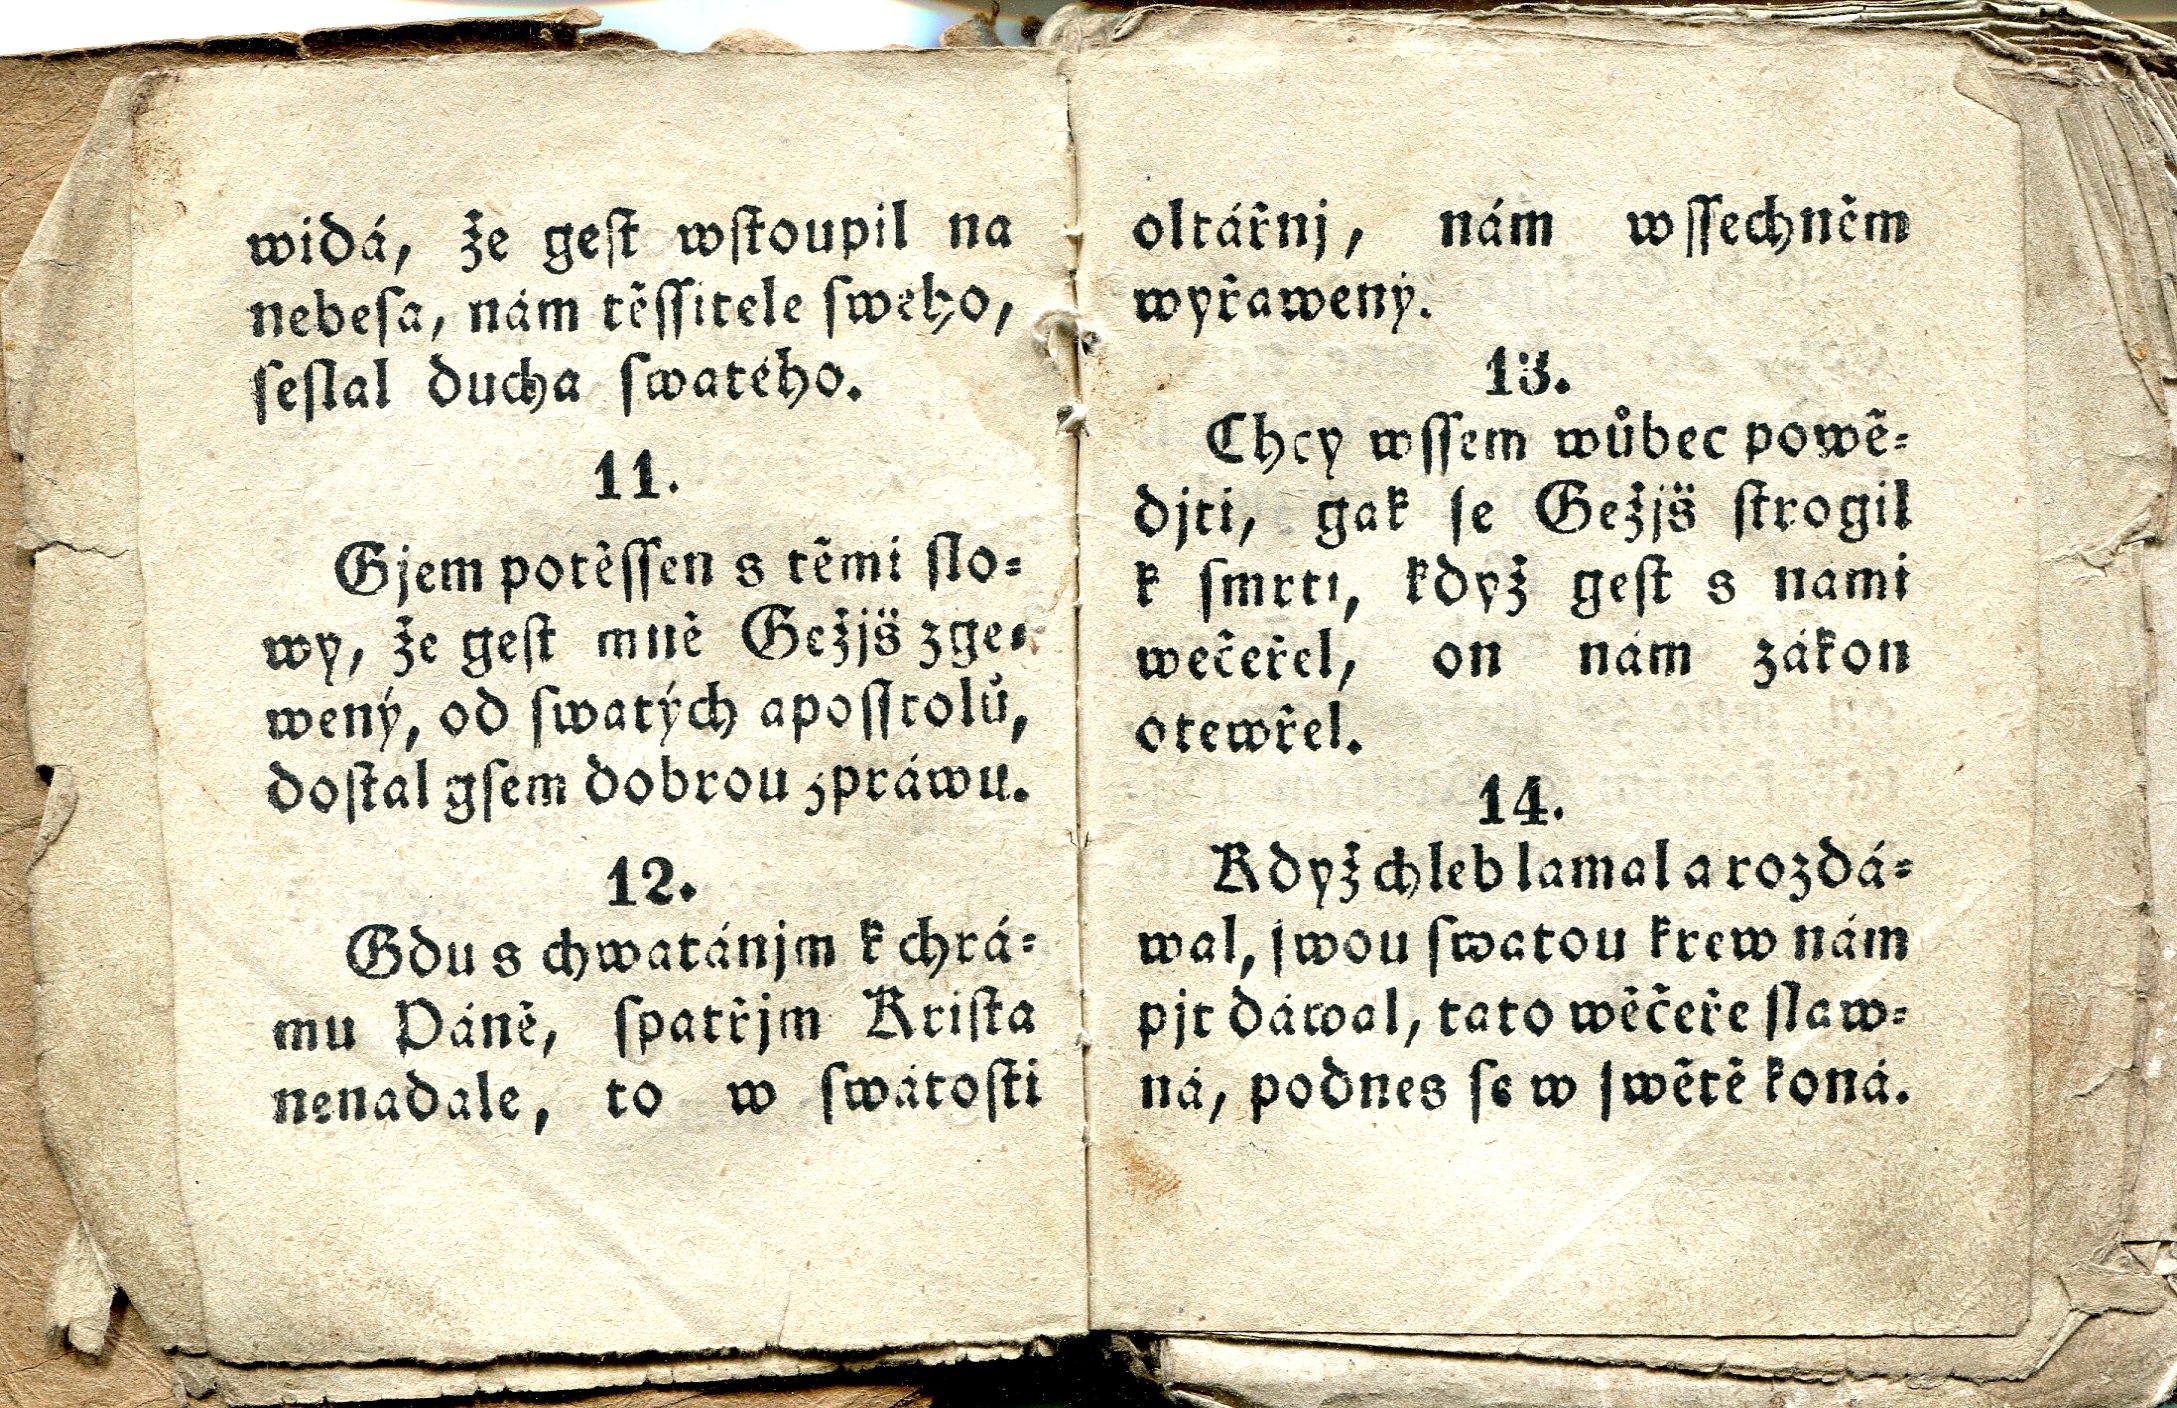 widá, že geſt wſtoupil na
nebeſa, nám těſſitele ſweho,
ſeſlal ducha ſwatého.
11.
Gjem potěſſen s těmi ſlo=
wy, že geſt mně Gežjš zge=
wený, od ſwatých apoſſtolů,
doſtal gſem dobrou zpráwu.
12.
Gdu s chwatánjm k chrá=
mu Páně, ſpatřjm Kriſta
nenadale, to w ſwátoſti
oltářnj, nám wſſechněm
wyřawený.
13.
Chcy wſſem wůbec powě=
djti, gak ſe Gežjš ſtrogil
k ſmrti, když geſt s nami
wečeřel, on nám zákon
otewřel.
14.
Když chleb lamal a rozdá=
wal, ſwou ſwatou krew nám
pjt dáwal, tato wěčeře ſlaw=
ná, podnes ſe w ſwětě koná.